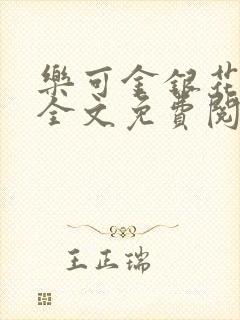 樂可金銀花
全文免費閱
王正瑞